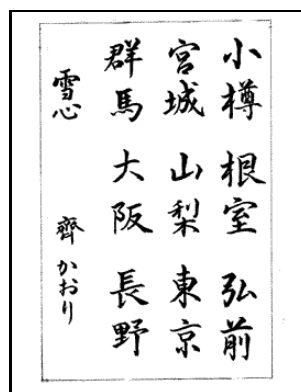 小樽 根室 弘前
宮城 山梨 東京
群馬 大阪 長野
雪心 齊 かおり